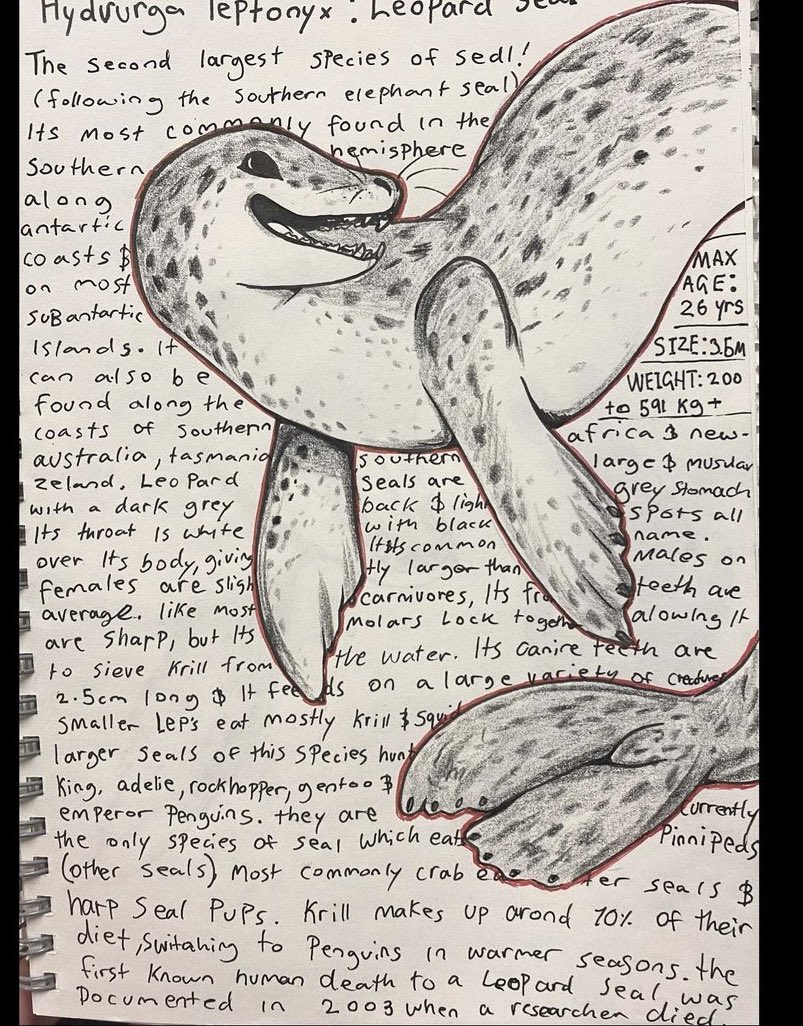 Hydrurga leptonyx : Leopard Seal
The second largest species of seal!
(following the southern elephant seal)
Its most commonly found in the
Southern hemisphere
along
antartic
coasts $
on most
SUBantartic
Islands. It
can also be
found along the
coasts of southern
australia, tasmania southern africa $ new-
zeland. Leopard seals are large $ muscular
with a dark grey back $ light grey stomach
Its throat Is white with black spots all
over Its body, giving Its common name.
females are slightly larger than males on
average. like most carnivores, Its front teeth are
are sharp, but Its molars Lock together alowing It
to sieve krill from the water. Its canine teeth are
2.5cm long $ It feeds on a large variety of creatures
smaller Lep's eat mostly krill $ squid
larger seals of this species hunt
king, adelie, rockhopper, gentoo $
emperor Penguins. they are currently
the only species of seal which eats Pinnipeds
(other seals), most commonly crab eater seals $
harp seal pups. Krill makes up arond 70% of their
diet, switahing to Penguins in warmer seasons. the
first known human death to a Leopard seal was
Documented in 2003 when a researcher died
MAX
AGE:
26 yrs
SIZE:3.6M
WEIGHT: 200
to 591 Kg+